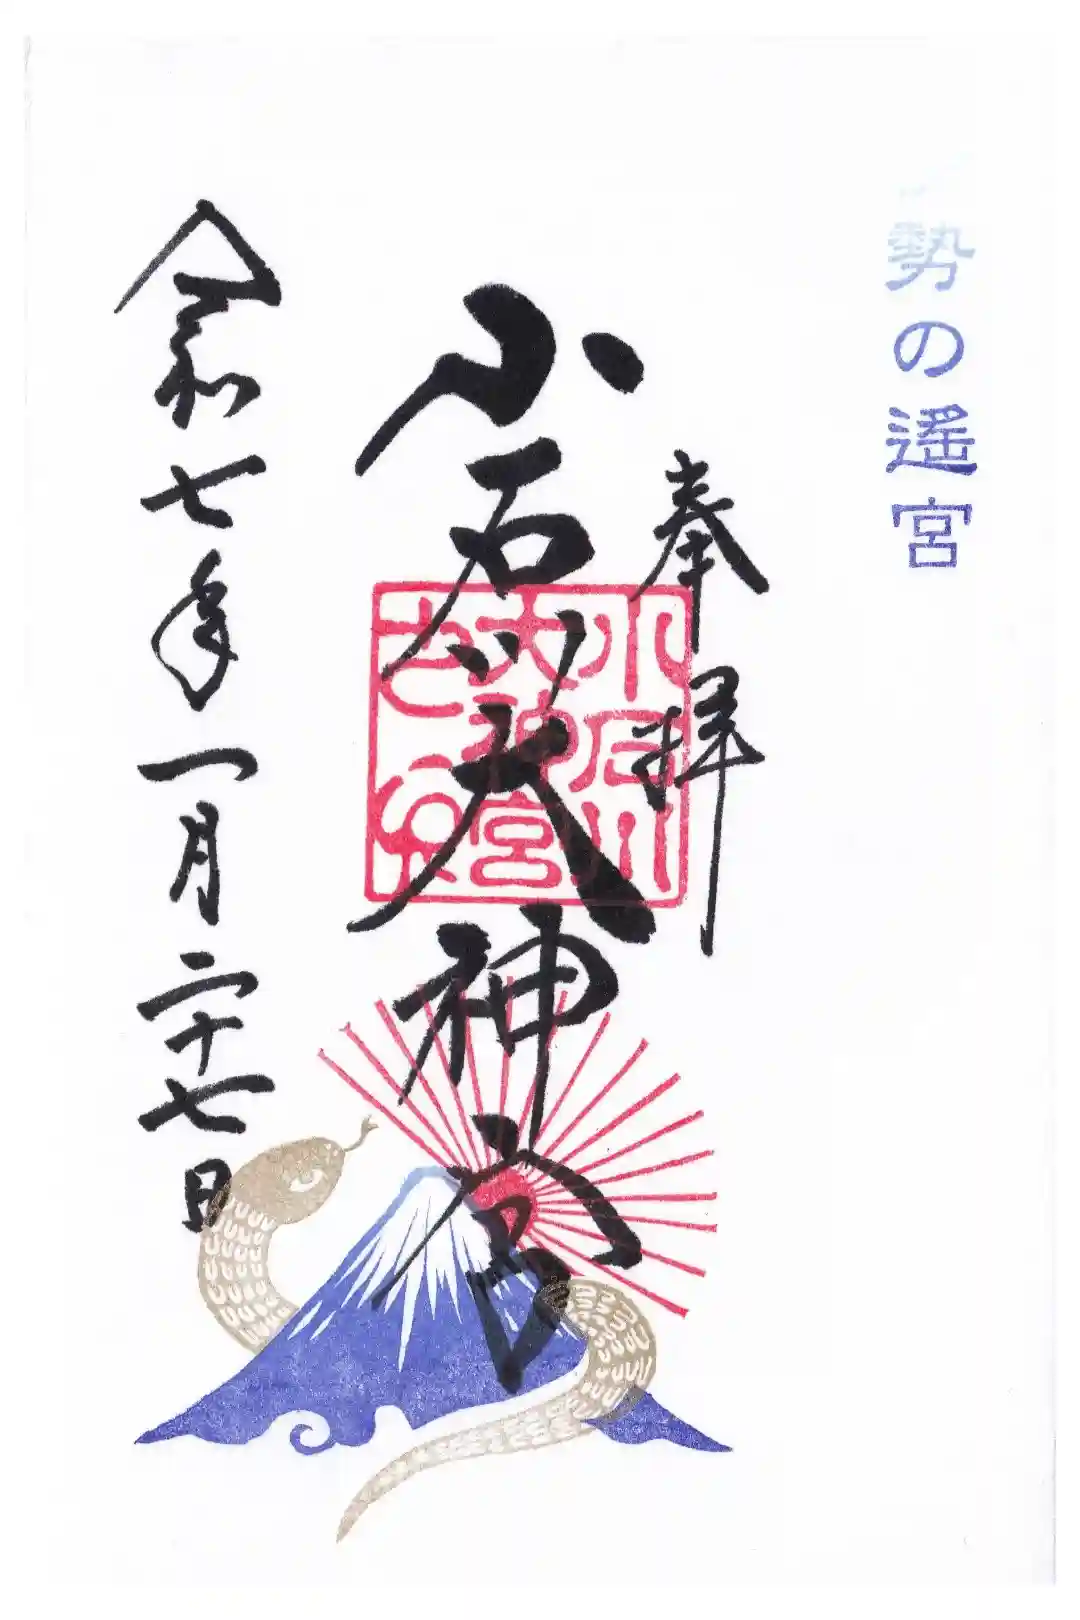 勢の遙宮
奉拝
小石川大神宮
小石川
大神宮
之
令和七年一月二十七日